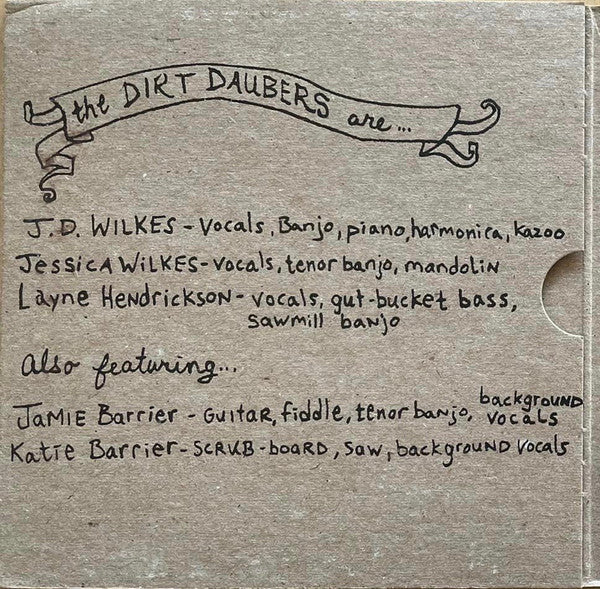 the DIRT DAUBERS are...
J.D. WILKES - Vocals, Banjo, piano, harmonica, kazoo
Jessica Wilkes - vocals, tenor banjo, mandolin
Layne Hendrickson - vocals, gut-bucket bass,
sawmill banjo
also featuring...
Jamie Barrier - Guitar, fiddle, tenor banjo, background vocals
Katie Barrier - scrub-board, saw, background vocals